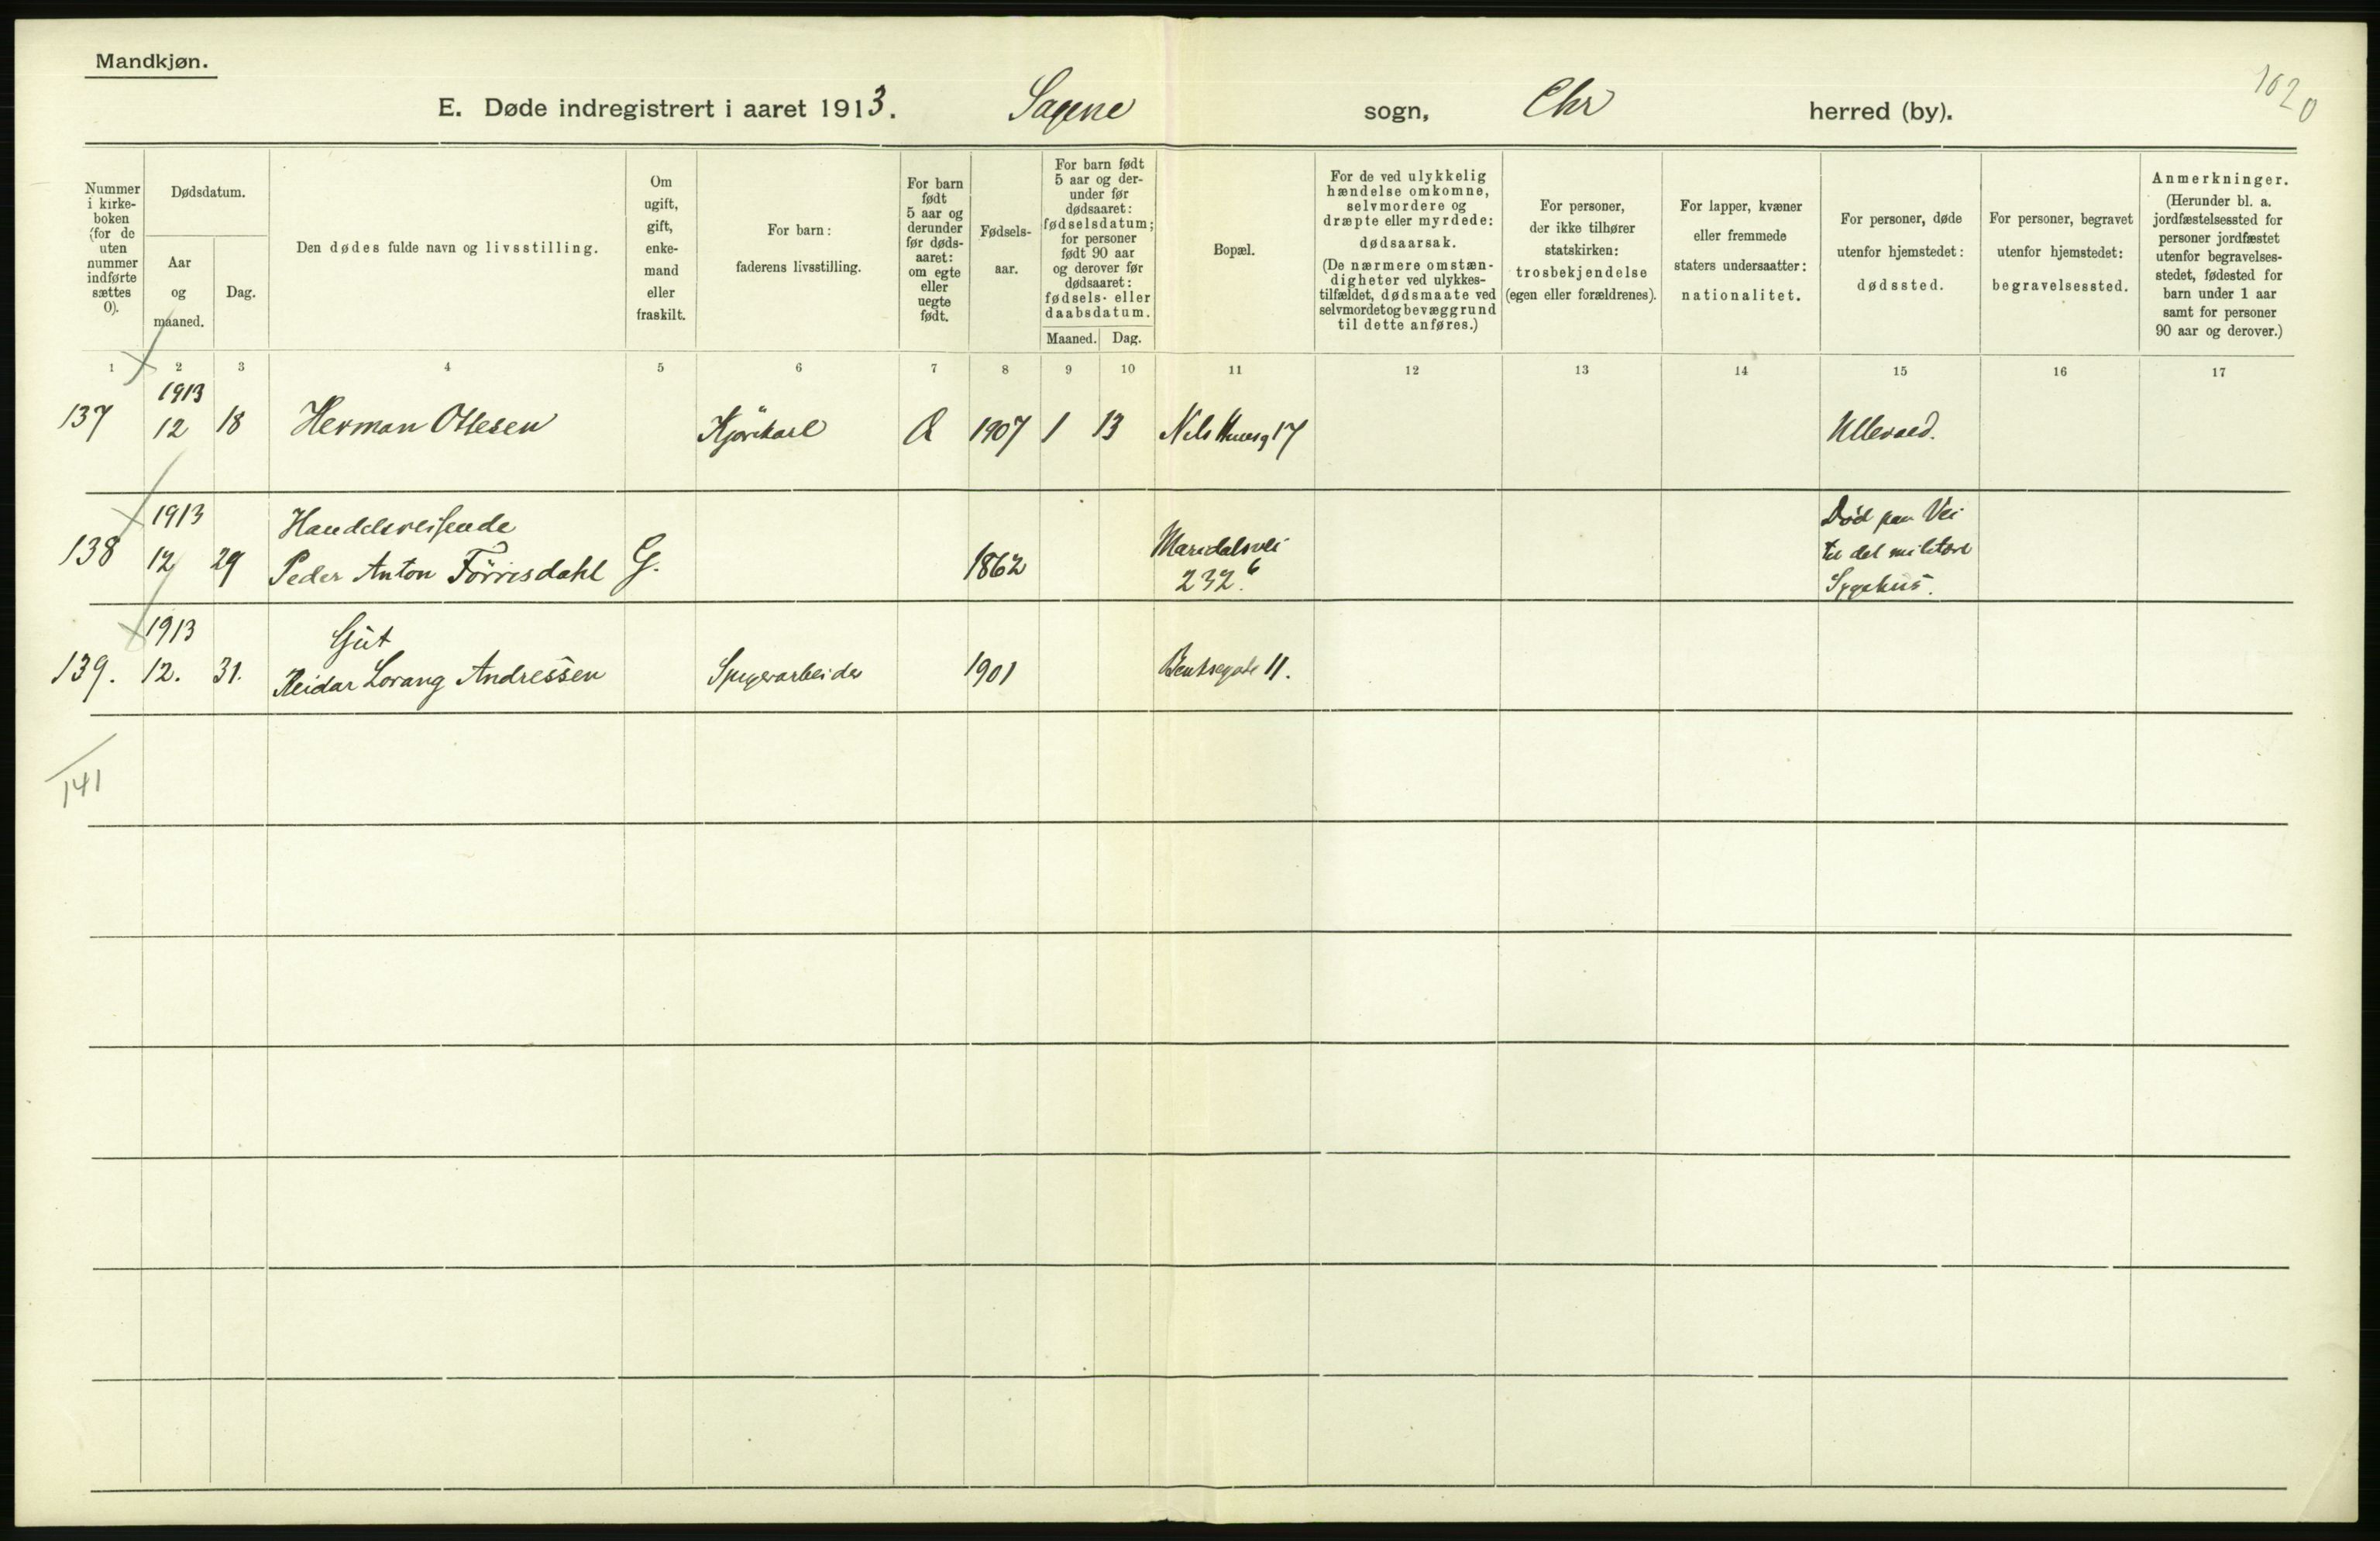 Mandkjøn.
E. Døde indregistrert i aaret 1913. Sagene sogn, Chr herred (by).
1020
Nummer
i kirke-
boken
(for de
uten
nummer
indførte
sættes
0).
Dødsdatum.
Aar
og
maaned.
Dag.
Den dødes fulde navn og livsstilling.
Om
ugift,
gift,
enke-
mand
eller
fraskilt.
For barn:
faderens livsstilling.
For barn
født
5 aar og
derunder
før døds-
aaret:
om egte
eller
uegte
født.
Fødsels-
aar.
For barn født
5 aar og der-
under før
dødsaaret:
fødselsdatum;
for personer
født 90 aar
og derover før
dødsaaret:
fødsels- eller
daabsdatum.
Maaned. Dag.
Bopæl.
For de ved ulykkelig
hændelse omkomne,
selvmordere og
dræpte eller myrdede:
dødsaarsak.
(De nærmere omstæn-
digheter ved ulykkes-
tilfældet, dødsmaate ved
selvmordet og bevæggrund
til dette anføres.)
For personer,
der ikke tilhører
statskirken:
trosbekjendelse
(egen eller forældrenes).
For lapper, kvæner
eller fremmede
staters undersaatter:
nationalitet.
For personer, døde
utenfor hjemstedet:
dødssted.
For personer, begravet
utenfor hjemstedet:
begravelsessted.
Anmerkninger.
(Herunder bl. a.
jordfæstelsessted for
personer jordfæstet
utenfor begravelses-
stedet, fødested for
barn under 1 aar
samt for personer
90 aar og derover.)
1 2 3 4 5 6 7 8 9 10 11 12 13 14 15 16 17
1913
137 12 18 Herman Ottesen Kjörekarl 1907 1 13 Nils 17 Ullevaal.
1913 Handelsreisende Død paa Vei
138 12 29 Peder Anton Förrisdahl G. 1862 Maridalsvei til det militære
232.6 Sygehus.
1913 Gut
139. 12. 31. Reidar Lorang Andressen Spigerarbeider 1901 Bentsegate 11.
141